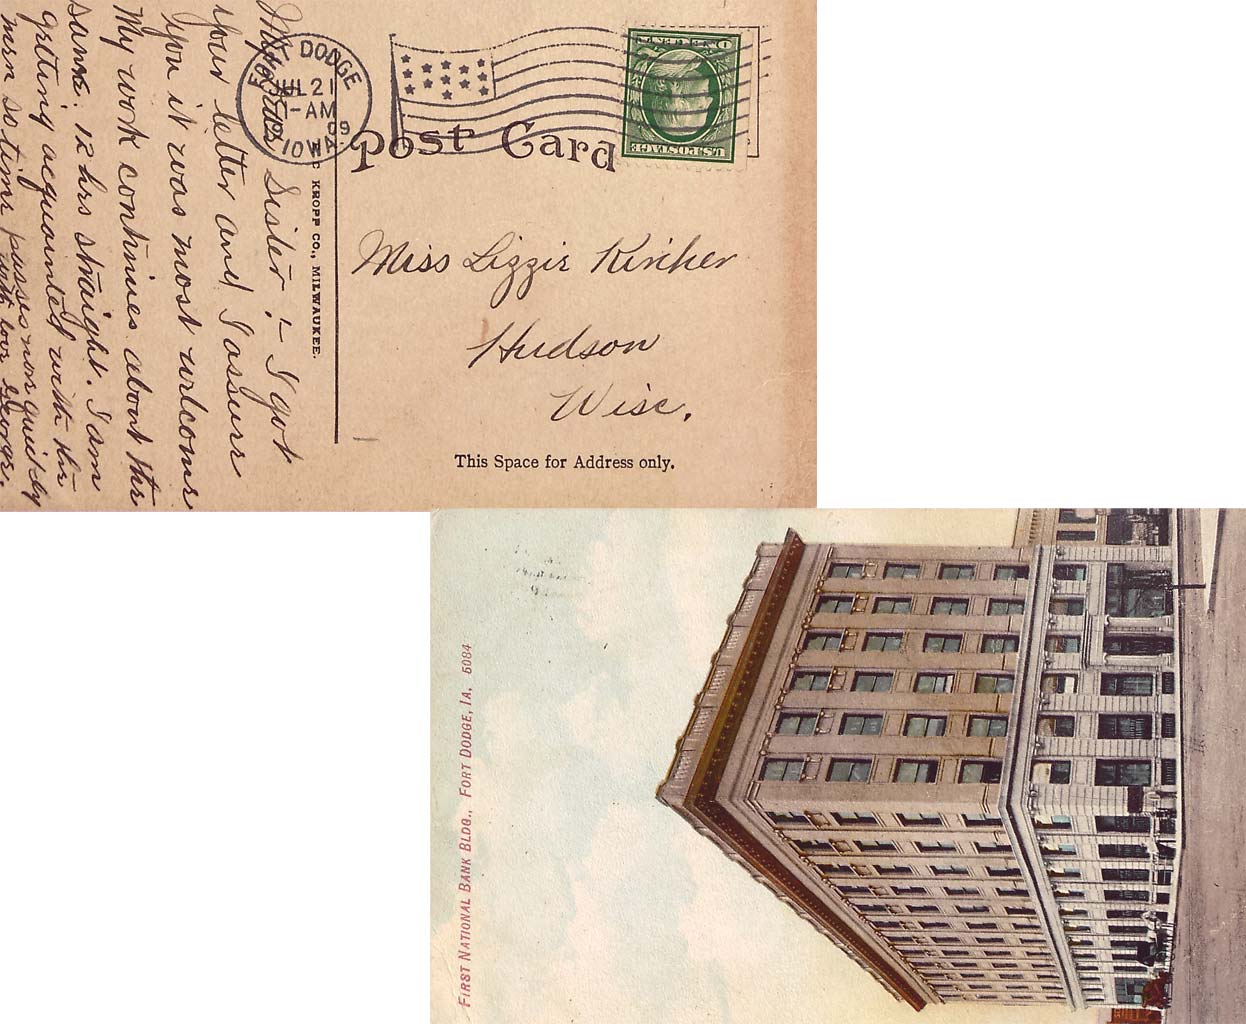 My Dear Sister :- I got
your letter and I assure
you it was most welcome
My work continues about the
same. 12 hrs straight. I am
getting acquainted with the
men so time passes more quickly
with love George.
FORT DODGE
JUL 21
1-AM
09
IOWA.
Post Card
U.S. POSTAGE
ONE CENT
KROPP CO., MILWAUKEE.
Miss Lizzie Kircher
Hudson
Wisc.
This Space for Address only.
FIRST NATIONAL BANK BLDG., FORT DODGE, IA, 5084